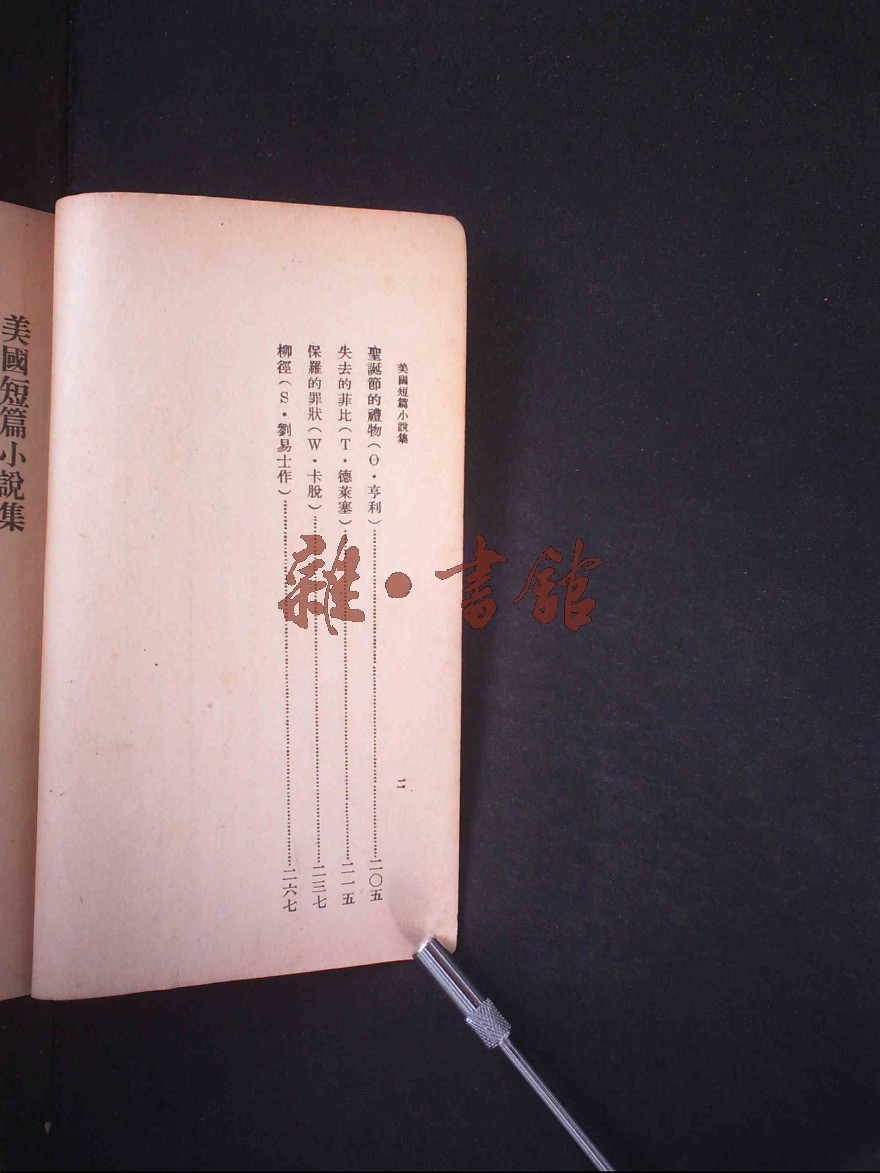 美國短篇小說集
二
聖誕節的禮物（O・亨利）……二〇五
失去的菲比（T・德萊塞）……二一五
保羅的罪狀（W・卡脫）……二三七
柳徑（S・劉易士作）……二六七
美國短篇小說集
雜・書館